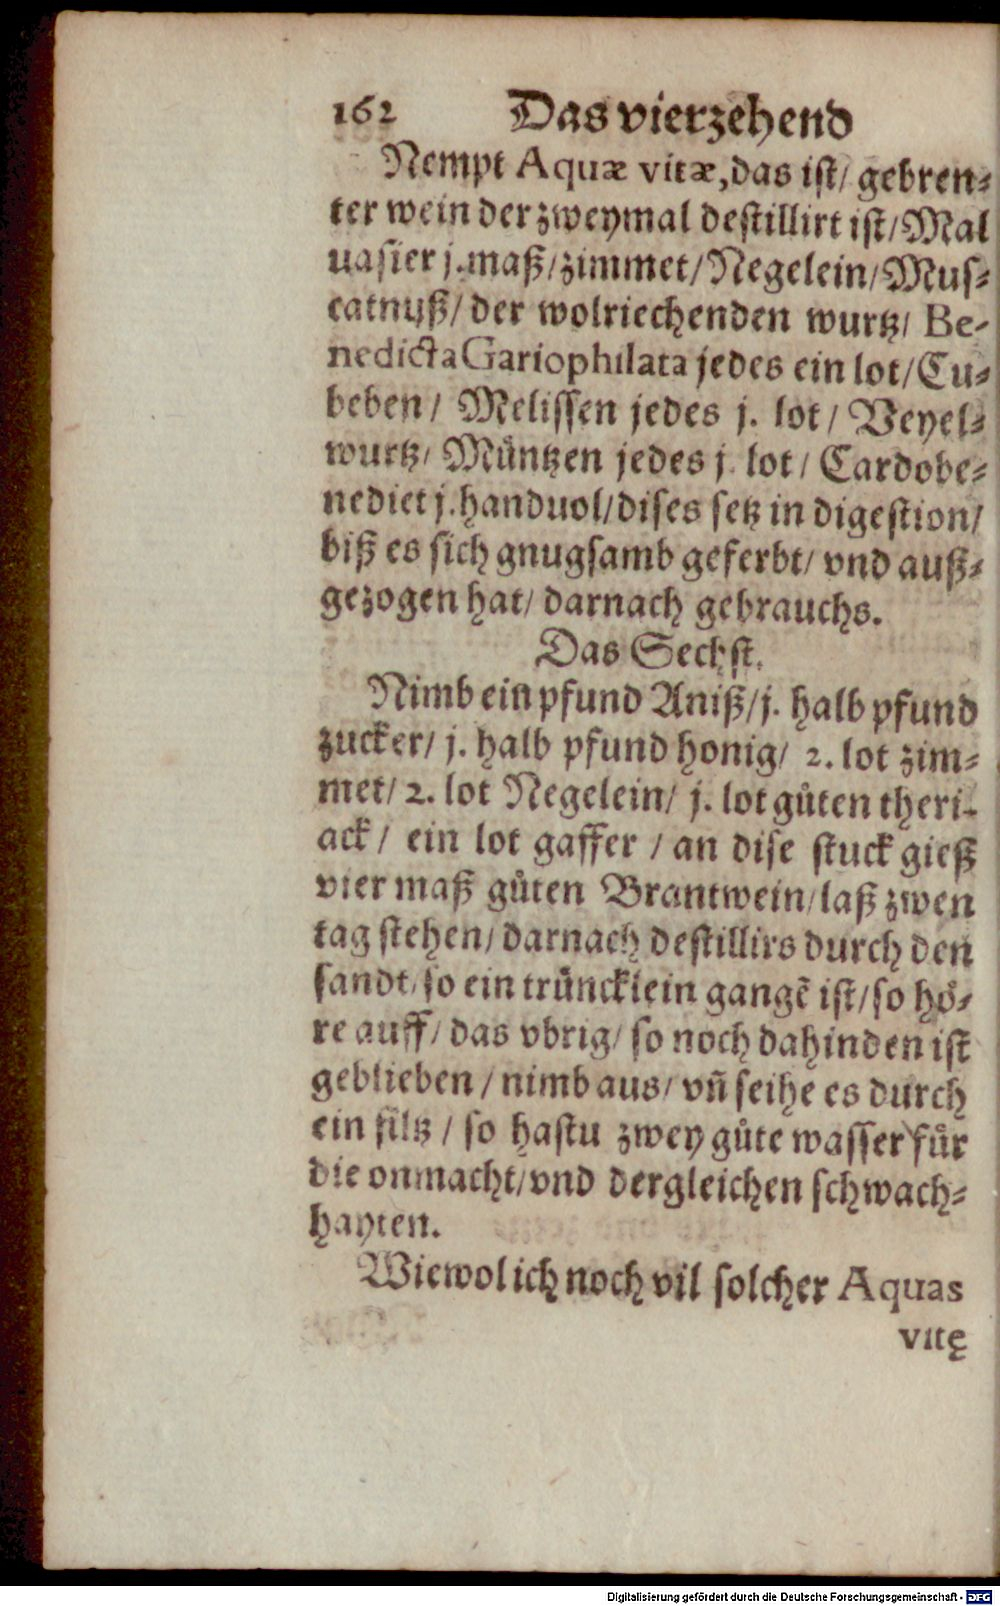 162 Das vierzehend
Nempt Aquæ vitæ, das ist/ gebren⸗
ter wein der zweymal destillirt ist/ Mal
uasier j. maß/ zimmet/ Negelein/ Mus⸗
catnuß/ der wolriechenden wurtz/ Be-
nedicta Gariophilata jedes ein lot/ Cu⸗
beben/ Melissen jedes j. lot/ Veyel⸗
wurtz/ Můntzen jedes j. lot/ Cardobe⸗
nedict j. handuol/ dises setz in digestion/
biß es sich gnugsamb geferbt/ vnd auß⸗
gezogen hat/ darnach gebrauchs.
Das Sechst.
Nimb ein pfund Aniß/ j. halb pfund
zucker/ j. halb pfund honig/ 2. lot zim⸗
met/ 2. lot Negelein/ j. lot gůten theri⸗
ack/ ein lot gaffer/ an dise stuck gieß
vier maß gůten Brantwein/ laß zwen
tag stehen/ darnach destillirs durch den
sandt/ so ein trůncklein gangẽ ist/ so hoͤ⸗
re auff/ das vbrig/ so noch dahinden ist
geblieben/ nimb aus/ vñ seihe es durch
ein filtz/ so hastu zwey gůte wasser fůr
die onmacht/ vnd dergleichen schwach⸗
hayten.
Wiewol ich noch vil solcher Aquas
vitę
Digitalisierung gefördert durch die Deutsche Forschungsgemeinschaft - DFG